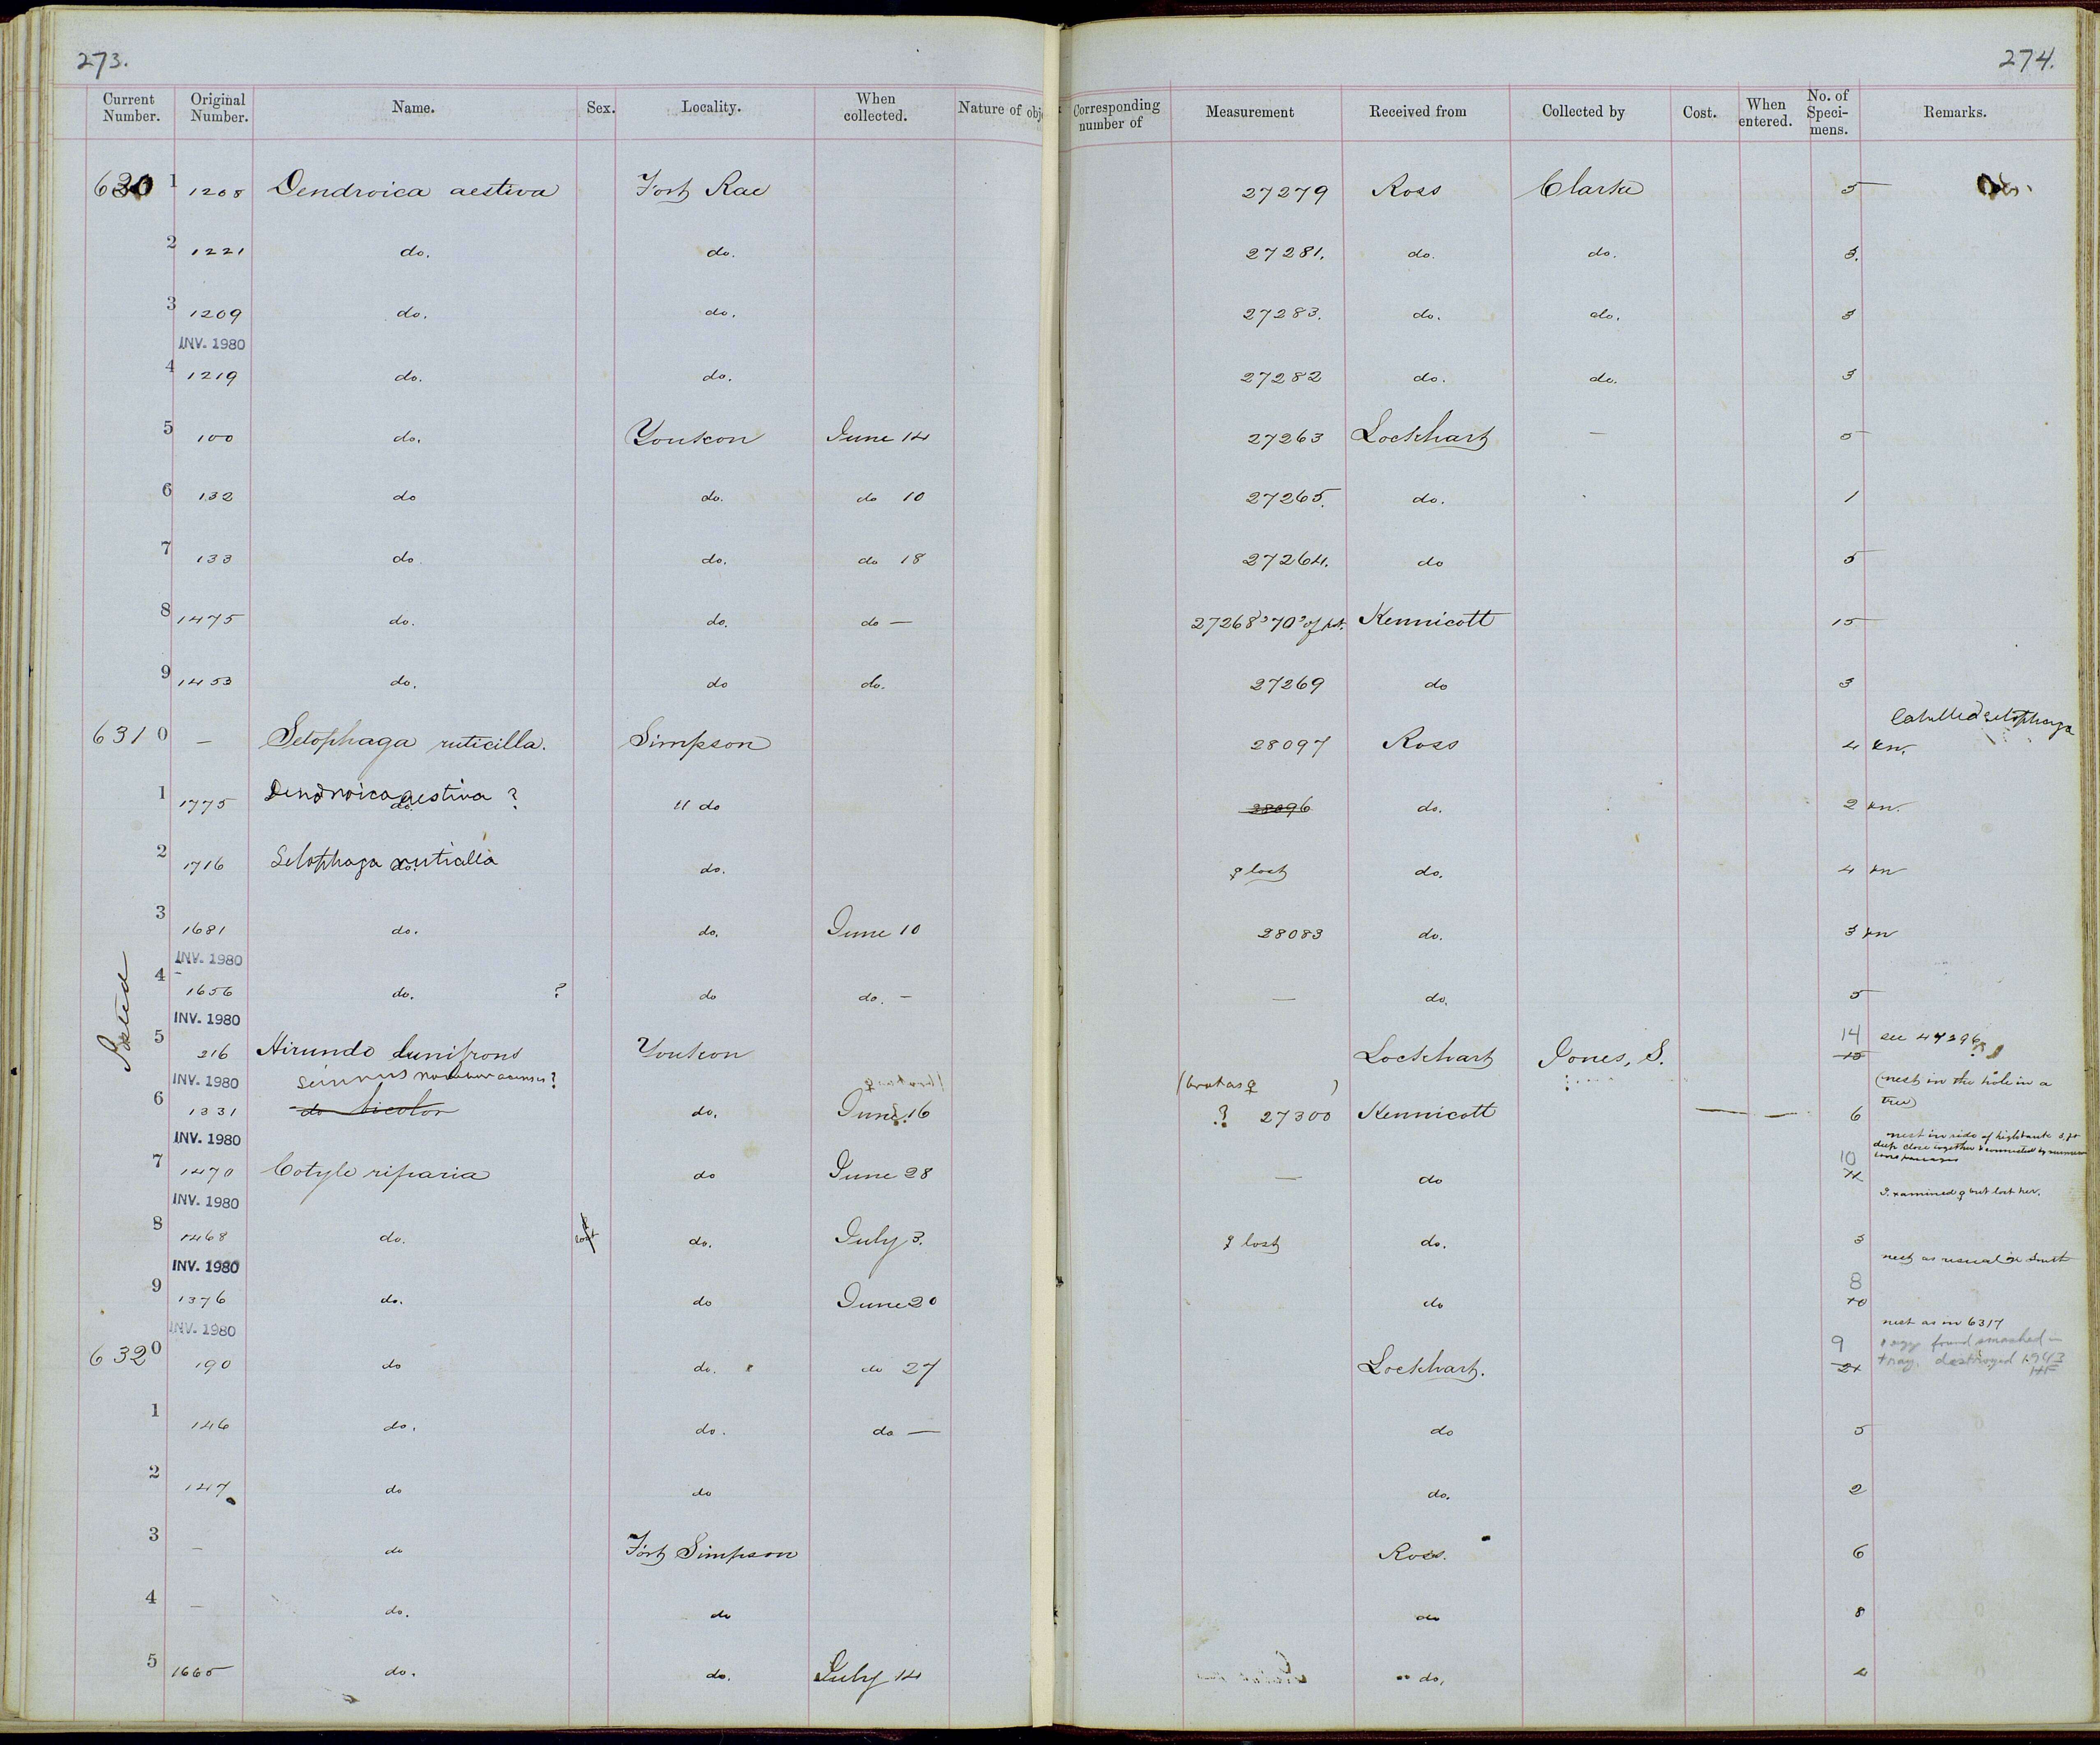 273.
274.
Current Number. Original Number. Name. Sex. Locality. When collected. Nature of obj Corresponding number of Measurement Received from Collected by Cost. When entered. No. of Speci-mens. Remarks.
630 1 1208 Dendroica aestiva Fort Rae 27279 Ross Clarke 5
2 1221 do. do. 27281. do. do. 3.
3 1209 do. do. 27283. do. do. 3
INV. 1980
4 1219 do. do. 27282 do. do. 3
5 100 do. Youkon June 14 27263 Lockhart — 5
6 132 do do. do 10 27265. do. 1
7 133 do do. do 18 27264. do 5
8 1475 do. do. do — 27268 70 Kennicott 15
9 1453 do. do do. 27269 do 3
labelled Setophaga
6310 — Setophaga ruticilla. Simpson 28097 Ross 4 kn.
1 1775 Dendroica aestiva ? do. " do 28096 do. 2 kn.
2 1716 Setophaga ruticilla do. do. ♀ lost do. 4 kn
3 1681 do. do. June 10 28083 do. 3 kn
INV. 1980
4 1656 do. ? do do. — — do. 5
INV. 1980
5 216 Hirundo lunifrons Youkon Lockhart Jones, S. 14 15 see 47296
INV. 1980 seiurus ? (brot as ♀ ) (nest in the hole in a tree)
6 1331 do bicolor do. June 16 ? 27300 Kennicott 6
INV. 1980
nest in side of high bank
deep close together & connected by
7 1470 Cotyle riparia do June 28 — do 10
INV. 1980
I examined ♀ but lost her.
8 1468 do. lost do. July 3. ♀ lost do. 3
INV. 1980
nest as usual
9 1376 do. do June 20 do 8 10
INV. 1980
nest as in 6317
6320 190 do do. do 27 Lockhart. 9 1 egg found smashed in
tray. destroyed 1943
HF
1 146 do. do. do — do 5
2 147 do do do. 2
3 — do Fort Simpson Ross. 6
4 — do. do do 8
5 1665 do. do. July 14 do. 4